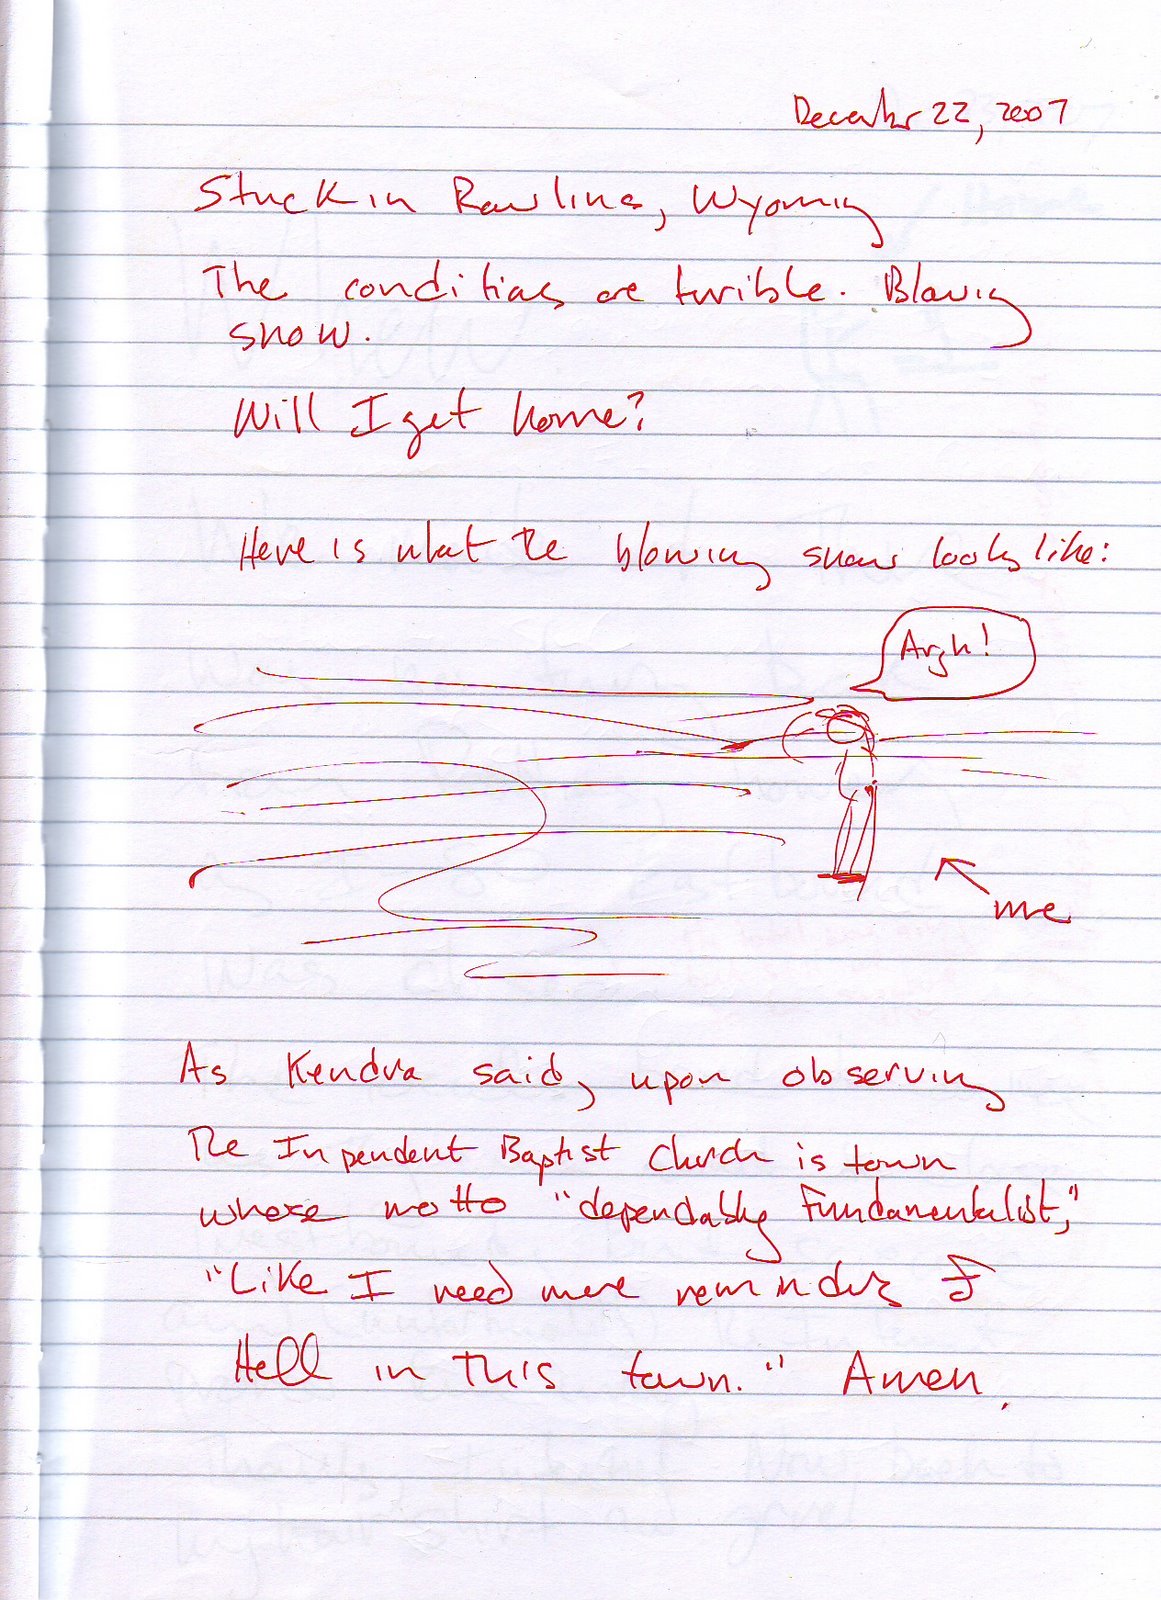 December 22, 2007
Stuck in Rawlins, Wyoming
The conditions are terrible. Blowing
snow.
Will I get home?
Here is what the blowing snow looks like:
Argh!
me
As Kendra said, upon observing
The Inpendent Baptist Church is town
whose motto "dependably Fundamentalist,"
"Like I need more reminders of
Hell in this town." Amen.